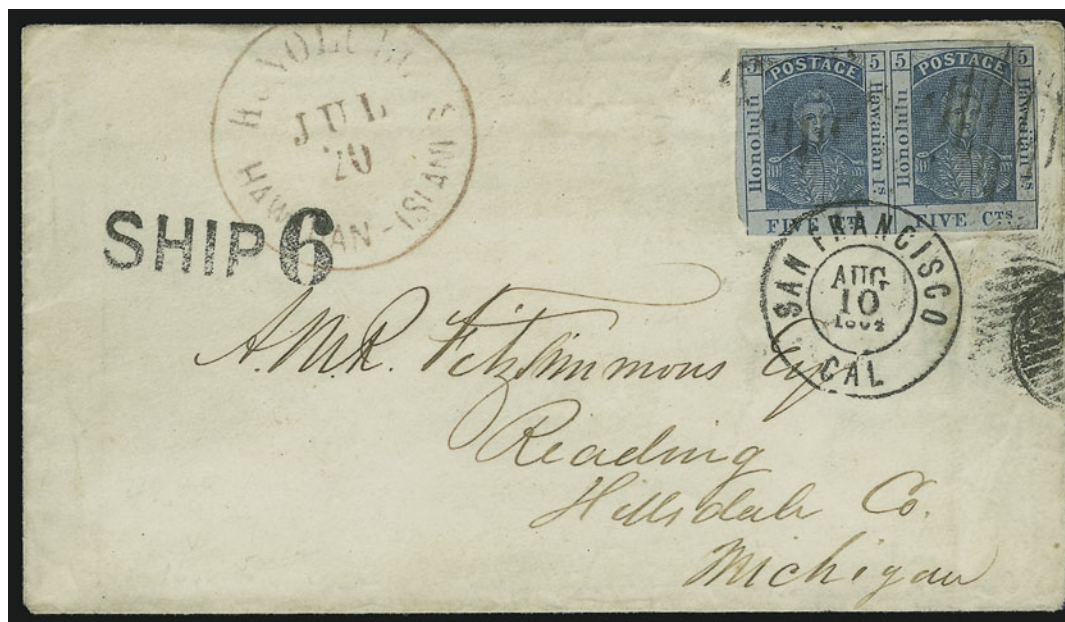 HONOLULU
JUL
20
HAWAIIAN-ISLANDS
5 POSTAGE 5
Honolulu
Hawaiian Is.
FIVE CTS
5 POSTAGE 5
Honolulu
Hawaiian Is.
FIVE CTS
SHIP 6
SAN FRANCISCO
AUG
10
1864
CAL
A.M.R. Fitzsimmons Esq
Reading
Hillsdale Co.
Michigan